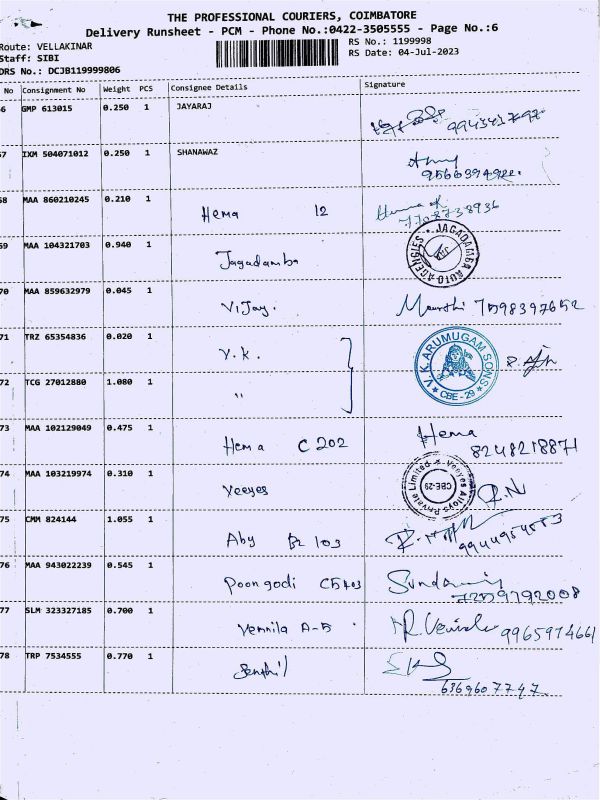 THE PROFESSIONAL COURIERS, COIMBATORE
Delivery Runsheet - PCM - Phone No.:0422-3505555 - Page No.:6
Route: VELLAKINAR
Staff: SIBI
DRS No.: DCJB119999806
RS No.: 1199998
RS Date: 04-Jul-2023
No Consignment No Weight PCS Consignee Details Signature
6 GMP 613015 0.250 1 JAYARAJ
67 IXM 504071012 0.250 1 SHANAWAZ
68 MAA 860210245 0.210 1 Hema 12 Hema 7708738936
69 MAA 104321703 0.940 1 Jagadamba JAGADAMBA AUTO AGENCIES
70 MAA 859632979 0.045 1 Vijay. 7598397652
71 TRZ 65354836 0.020 1 V.K. V.K. ARUMUGAM SONS CBE-29
72 TCG 27012880 1.080 1 "
73 MAA 102129049 0.475 1 Hema C 202 Hema 8248218871
74 MAA 103219974 0.310 1 Veeyes Veeyes Alloys Private Limited CBE-29 R.N
75 CMM 824144 1.055 1 Aby B2 103
76 MAA 943022239 0.545 1 Poongodi C5403
77 SLM 323327185 0.700 1 Vennila A-5 9965974661
78 TRP 7534555 0.770 1 Senthil 6369607747